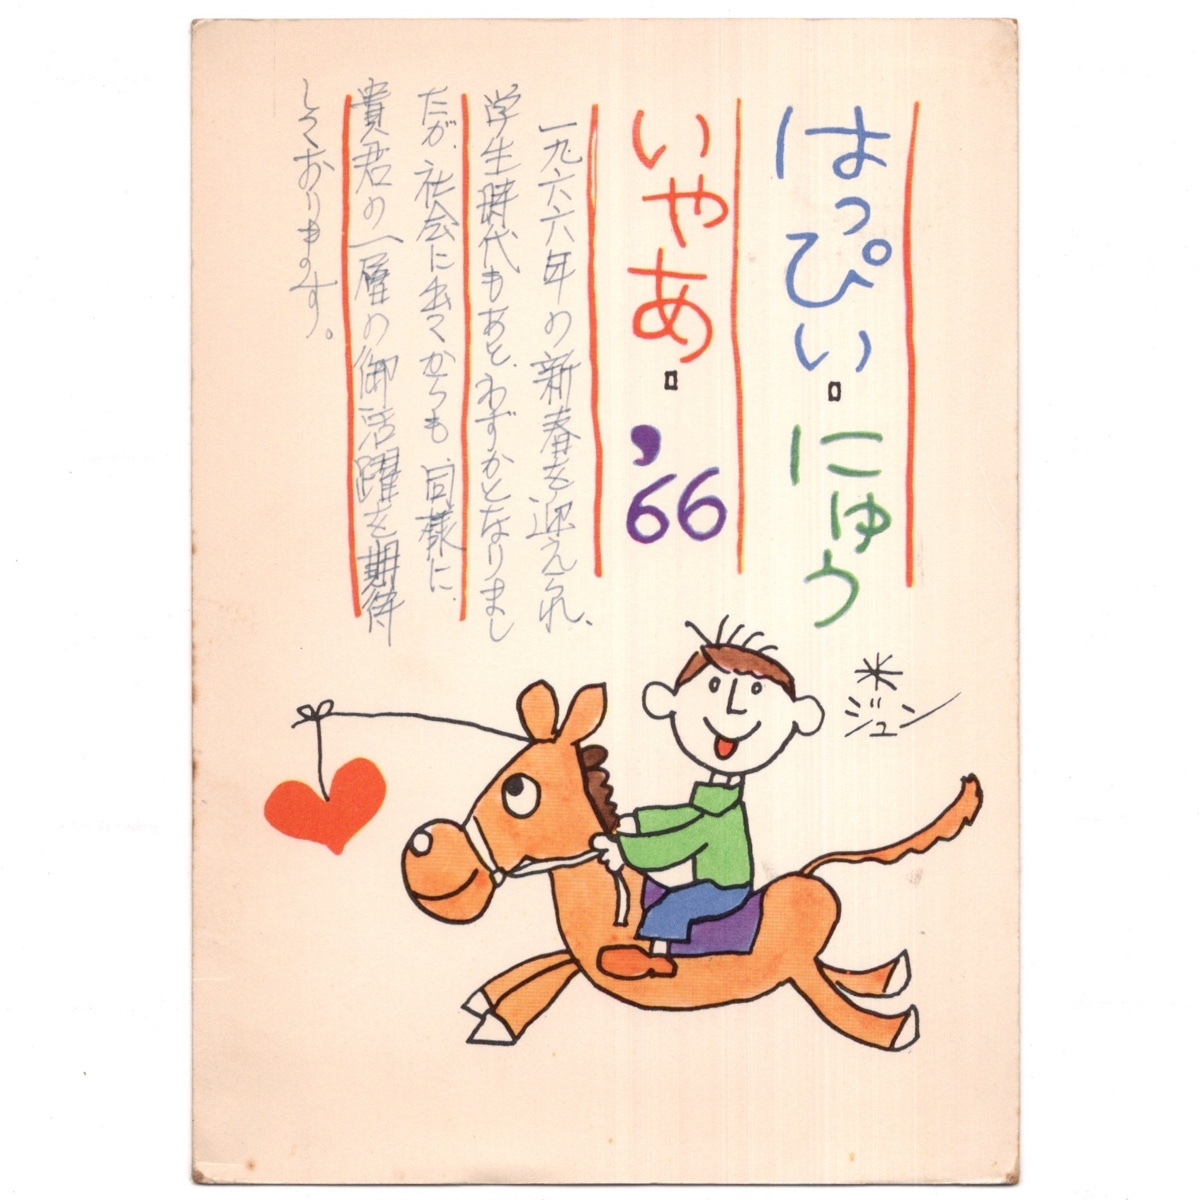 はっぴい・にゅう
いやあ・'66
一九六六年の新春を迎えられ、
学生時代もあと、わずかとなりまし
たが、社会に出てからも、同様に、
貴君の一層の御活躍を期待
しております。
米
ジュン